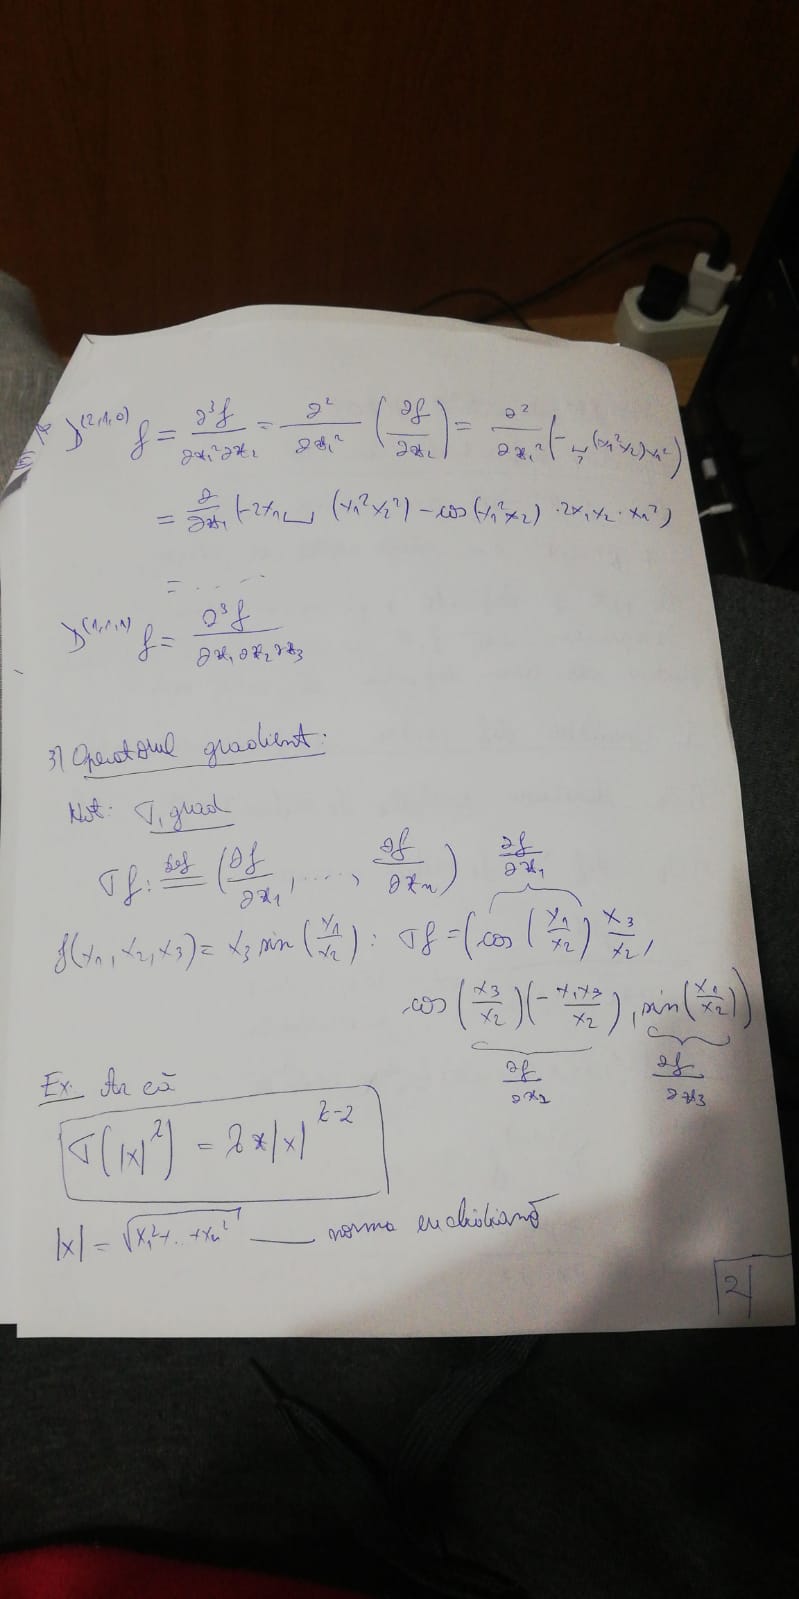 D^(2,1,0) f = ∂³f/∂x₁²∂x₂ = ∂²/∂x₁² (∂f/∂x₂) = ∂²/∂x₁² (- (x₁²x₂)x₁²)
= ∂/∂x₁ (-2x₁ (x₁²x₂²) - cos(x₁²x₂) · 2x₁x₂ · x₁²)
= .....
D^(1,1,1) f = ∂³f/∂x₁∂x₂∂x₃
3) Operatorul gradient:
Not: ∇, grad
∇f: =def= (∂f/∂x₁, ...., ∂f/∂xₙ)
∂f/∂x₁
f(x₁, x₂, x₃) = x₃ sin(x₁/x₂) : ∇f = (cos(x₁/x₂) x₃/x₂,
cos(x₃/x₂)(-x₁x₃/x₂), sin(x₁/x₂))
∂f/∂x₂ ∂f/∂x₃
Ex: Ar că
∇(|x|^λ) = λx|x|^λ-2
|x| = √x₁²+..+xₙ² — norma euclidiană
2